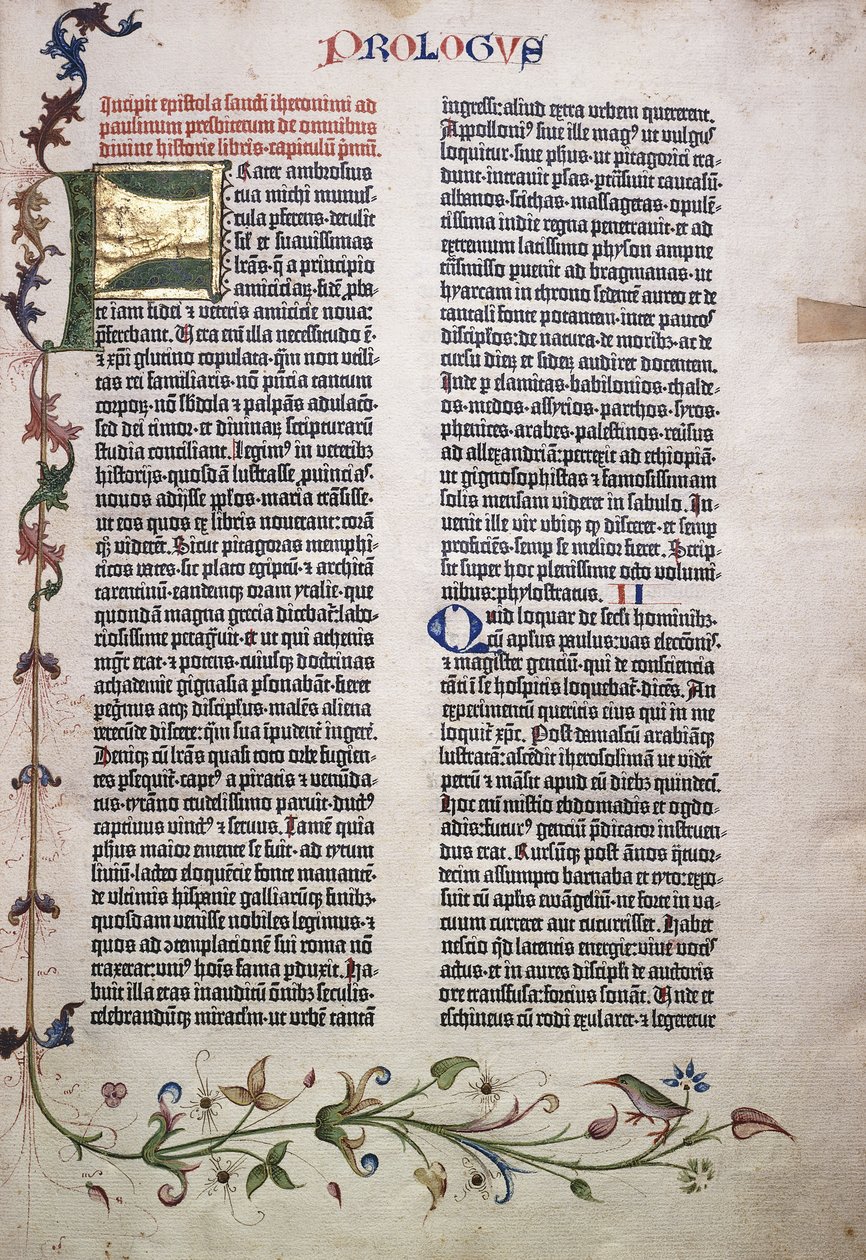 PROLOGUS
Incipit epistola sancti iheronimi ad
paulinum presbiterum de omnibus
divine historie libris·capitulū pʼmū.
Frater ambrosius
tua michi munus-
cula pferens·detulit
sil̄ et suavissimas
lrās·q̄ a principio
amiciciaꝝ·fidē ꝓba-
te iam fidei ⁊ veteris amicicie nova:
pʼferebant. Vera enī illa necessitudo ē·
⁊ xpī glutino copulata·qm̄ non utili-
tas rei familiaris·nō pn̄cia tantum
corpoꝝ·nō sb̄dola ⁊ palpās adulacō·
sed dei timor·et divinaꝝ scripturarū
studia conciliant. Legimꝰ in veteribꝫ
historijs·quosdā lustrasse ꝓuinciaˢ·
novos adijsse ppl̄os·maria trāsisse·
ut eos quos ex libris noverant: corā
qꝫ viderēt. Sicut pitagoras memphi-
ticos vates·sic plato egiptū·⁊ architā
tarentinū·eandemqꝫ oram ytalie·que
quondā magna grecia dicebat᷑: labo-
riosissime peragʼuit·et ut qui athenis
mgr̄ erat·⁊ potens·cuiusqꝫ doctrinas
achademie gignasia ꝑsonabāt·fieret
peg̊rinus atqꝫ discipl̄us·malēs aliena
verecūde discere: qm̄ sua īpudent᷑ ingere᷑.
Deniqꝫ cū lrās quasi toto orbe fugien-
tes ꝑsequit᷑·captꝰ a piratis ⁊ venūda-
tus·tyrāno crudelissimo paruit·ductꝰ
captivus vinctꝰ ⁊ servus. Tamē quia
ph̄us maior emente se fuit·ad tytum
liviū·lacteo eloquēcie fonte manantē·
de ultimis hispanie galliarūqꝫ finibꝫ·
quosdam venisse nobiles legimus·⁊
quos ad ɔtemplacionē sui roma nō
traxerat: uniꝰ hoīs fama ꝑduxit. Ha-
buit illa etas inauditū om̄ibꝫ seculis·
celebrandūqꝫ miracl̄m·ut urbē tantā
ingressi: aliud extra urbem quererent.
Appolloniꝰ sive ille magꝰ ut vulgꝰ
loquitur·sive ph̄us·ut pitagorici tra-
dunt·intravit ꝑsas·ptʼāsivit caucasū·
albanos·scithas·massagetas·opulē-
tissima indie regna penetravit·et ad
extremum latissimo physon ampne
tʼāsmisso puenit ad bragmanas·ut
hyarcam in throno sedentē aureo et de
tantali fonte potantem·inter paucoˢ
discipl̄os: de natura·de moribꝫ·ac de
cursu dieꝝ et sideꝝ audiret docentem.
Inde ꝑ elamitas·babilonios·chalde-
os·medos·assyrios·parthos·syros·
phenices·arabes·palestinos·reūsus
ad allexandriā: perrexit ad ethiopiā·
ut gignosophistas ⁊ famosissimam
solis mensam videret in sabulo. In-
venit ille vir ubiqꝫ qꝫ disceret·et semꝑ
proficiēs·semꝑ se melior fieret. Scrip-
sit super hoc plenissime octo volumi-
nibus: phylostratus. II
Quid loquar de sec̄li hominibꝫ·
cū apl̄us paulus: vas elecc̄onis·
⁊ magister genciū·qui de consciencia
tāti ī se hospitis loquebat᷑·dicēs. An
experimentū queritis eius qui in me
loquit᷑ xpc̄. Post damascū arabiāqꝫ
lustratā: ascēdit iherosolimā ut vidēt
petrū ⁊ māsit apud eū diebꝫ quindecī.
Hoc enī mistʼio ebdomadis et ogdo-
adis: futurꝰ genciū pʼdicator instruen-
dus erat. Rursūqꝫ post ānos qʼtuor-
decim assumpto barnaba et tyto: expo-
suit cū apl̄is ewāgeliū·ne forte in va-
cuum curreret aut cucurrisset. Habet
nescio qd̓ latentis energie: vive vociˢ
actus·et in aures discipl̄i de auctoris
ore transfusa: forcius sonāt. Unde et
eschineus cū rodi exularet·⁊ legeretur